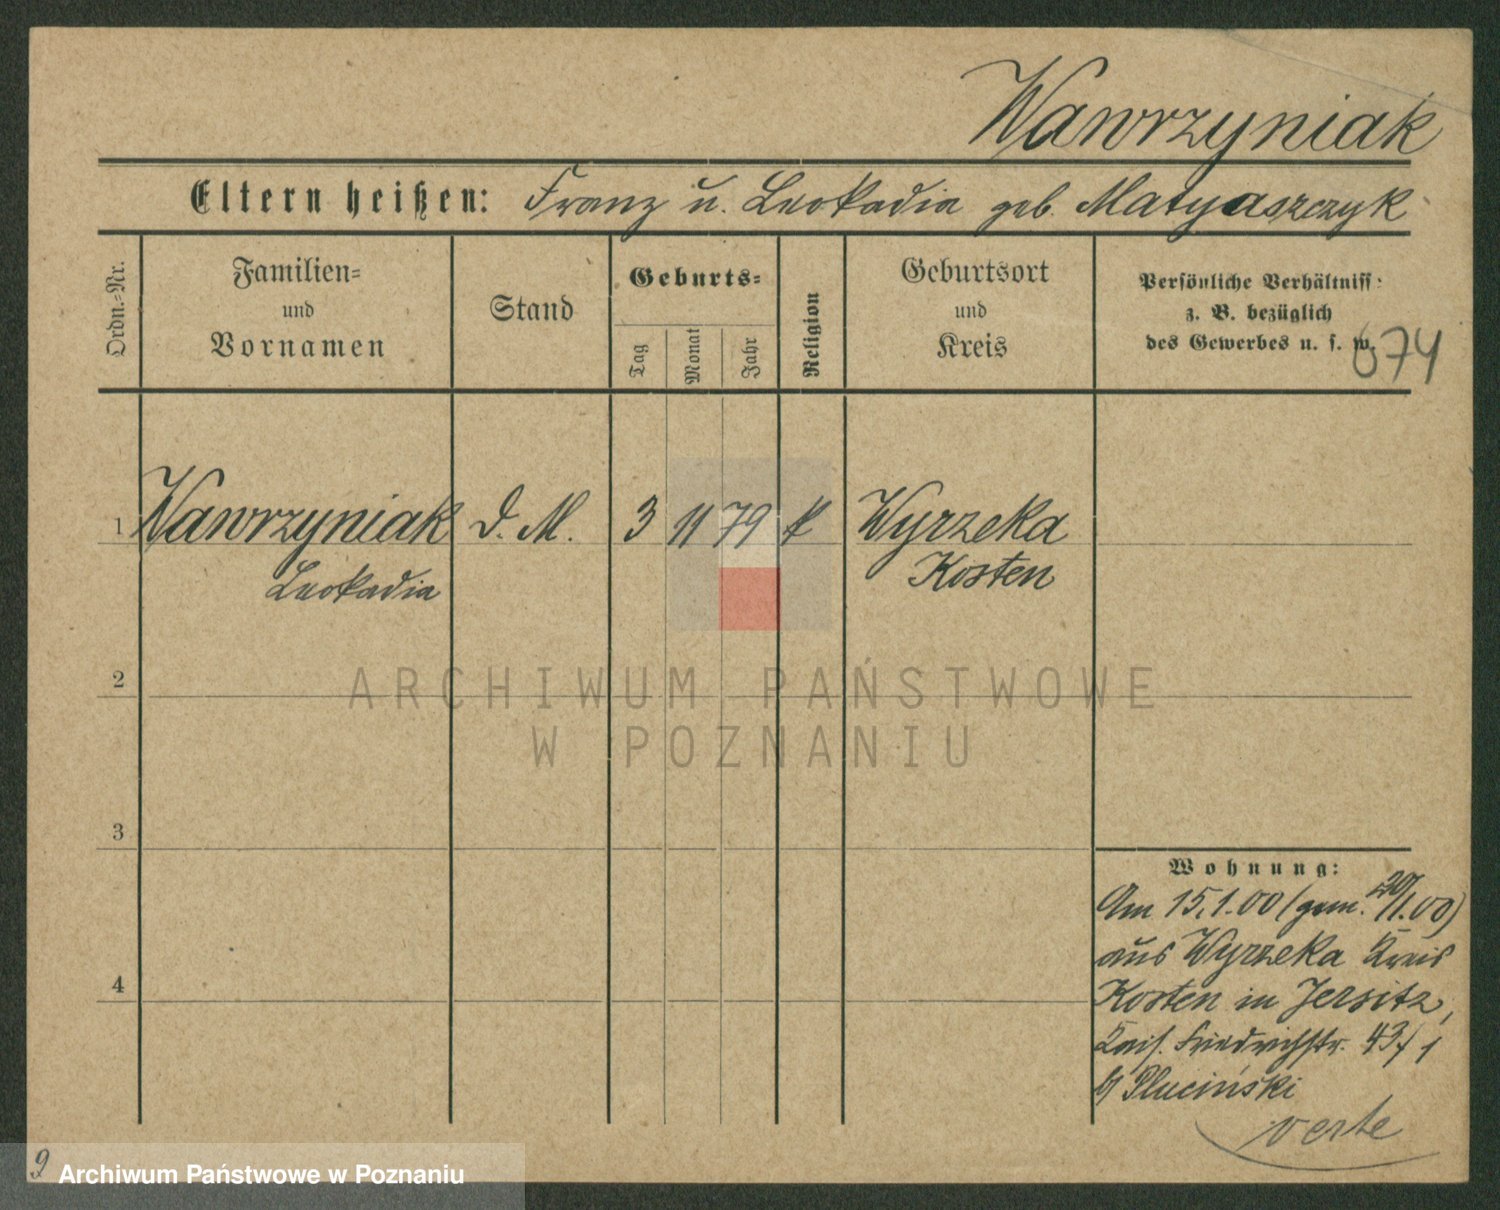 Wawrzyniak
Eltern heißen: Franz u. Leokadia geb. Matyaszczyk
Ordn.-Nr.
Familien-
und
Vornamen
Stand
Geburts-
Tag
Monat
Jahr
Religion
Geburtsort
und
Kreis
Persönliche Verhältniss:
z. B. bezüglich
des Gewerbes u. s. w.
674
1 Wawrzyniak D. M. 3 11 79 k Wyrzeka
Leokadia Kosten
2
ARCHIWUM PAŃSTWOWE
W POZNANIU
3
Wohnung:
Am 15.1.00 (gem. 20/1.00)
aus Wyrzeka Kreis
Kosten in Jersitz,
Kais. Friedrichstr. 43/1
b/ Pluciński
verte
4
9
Archiwum Państwowe w Poznaniu